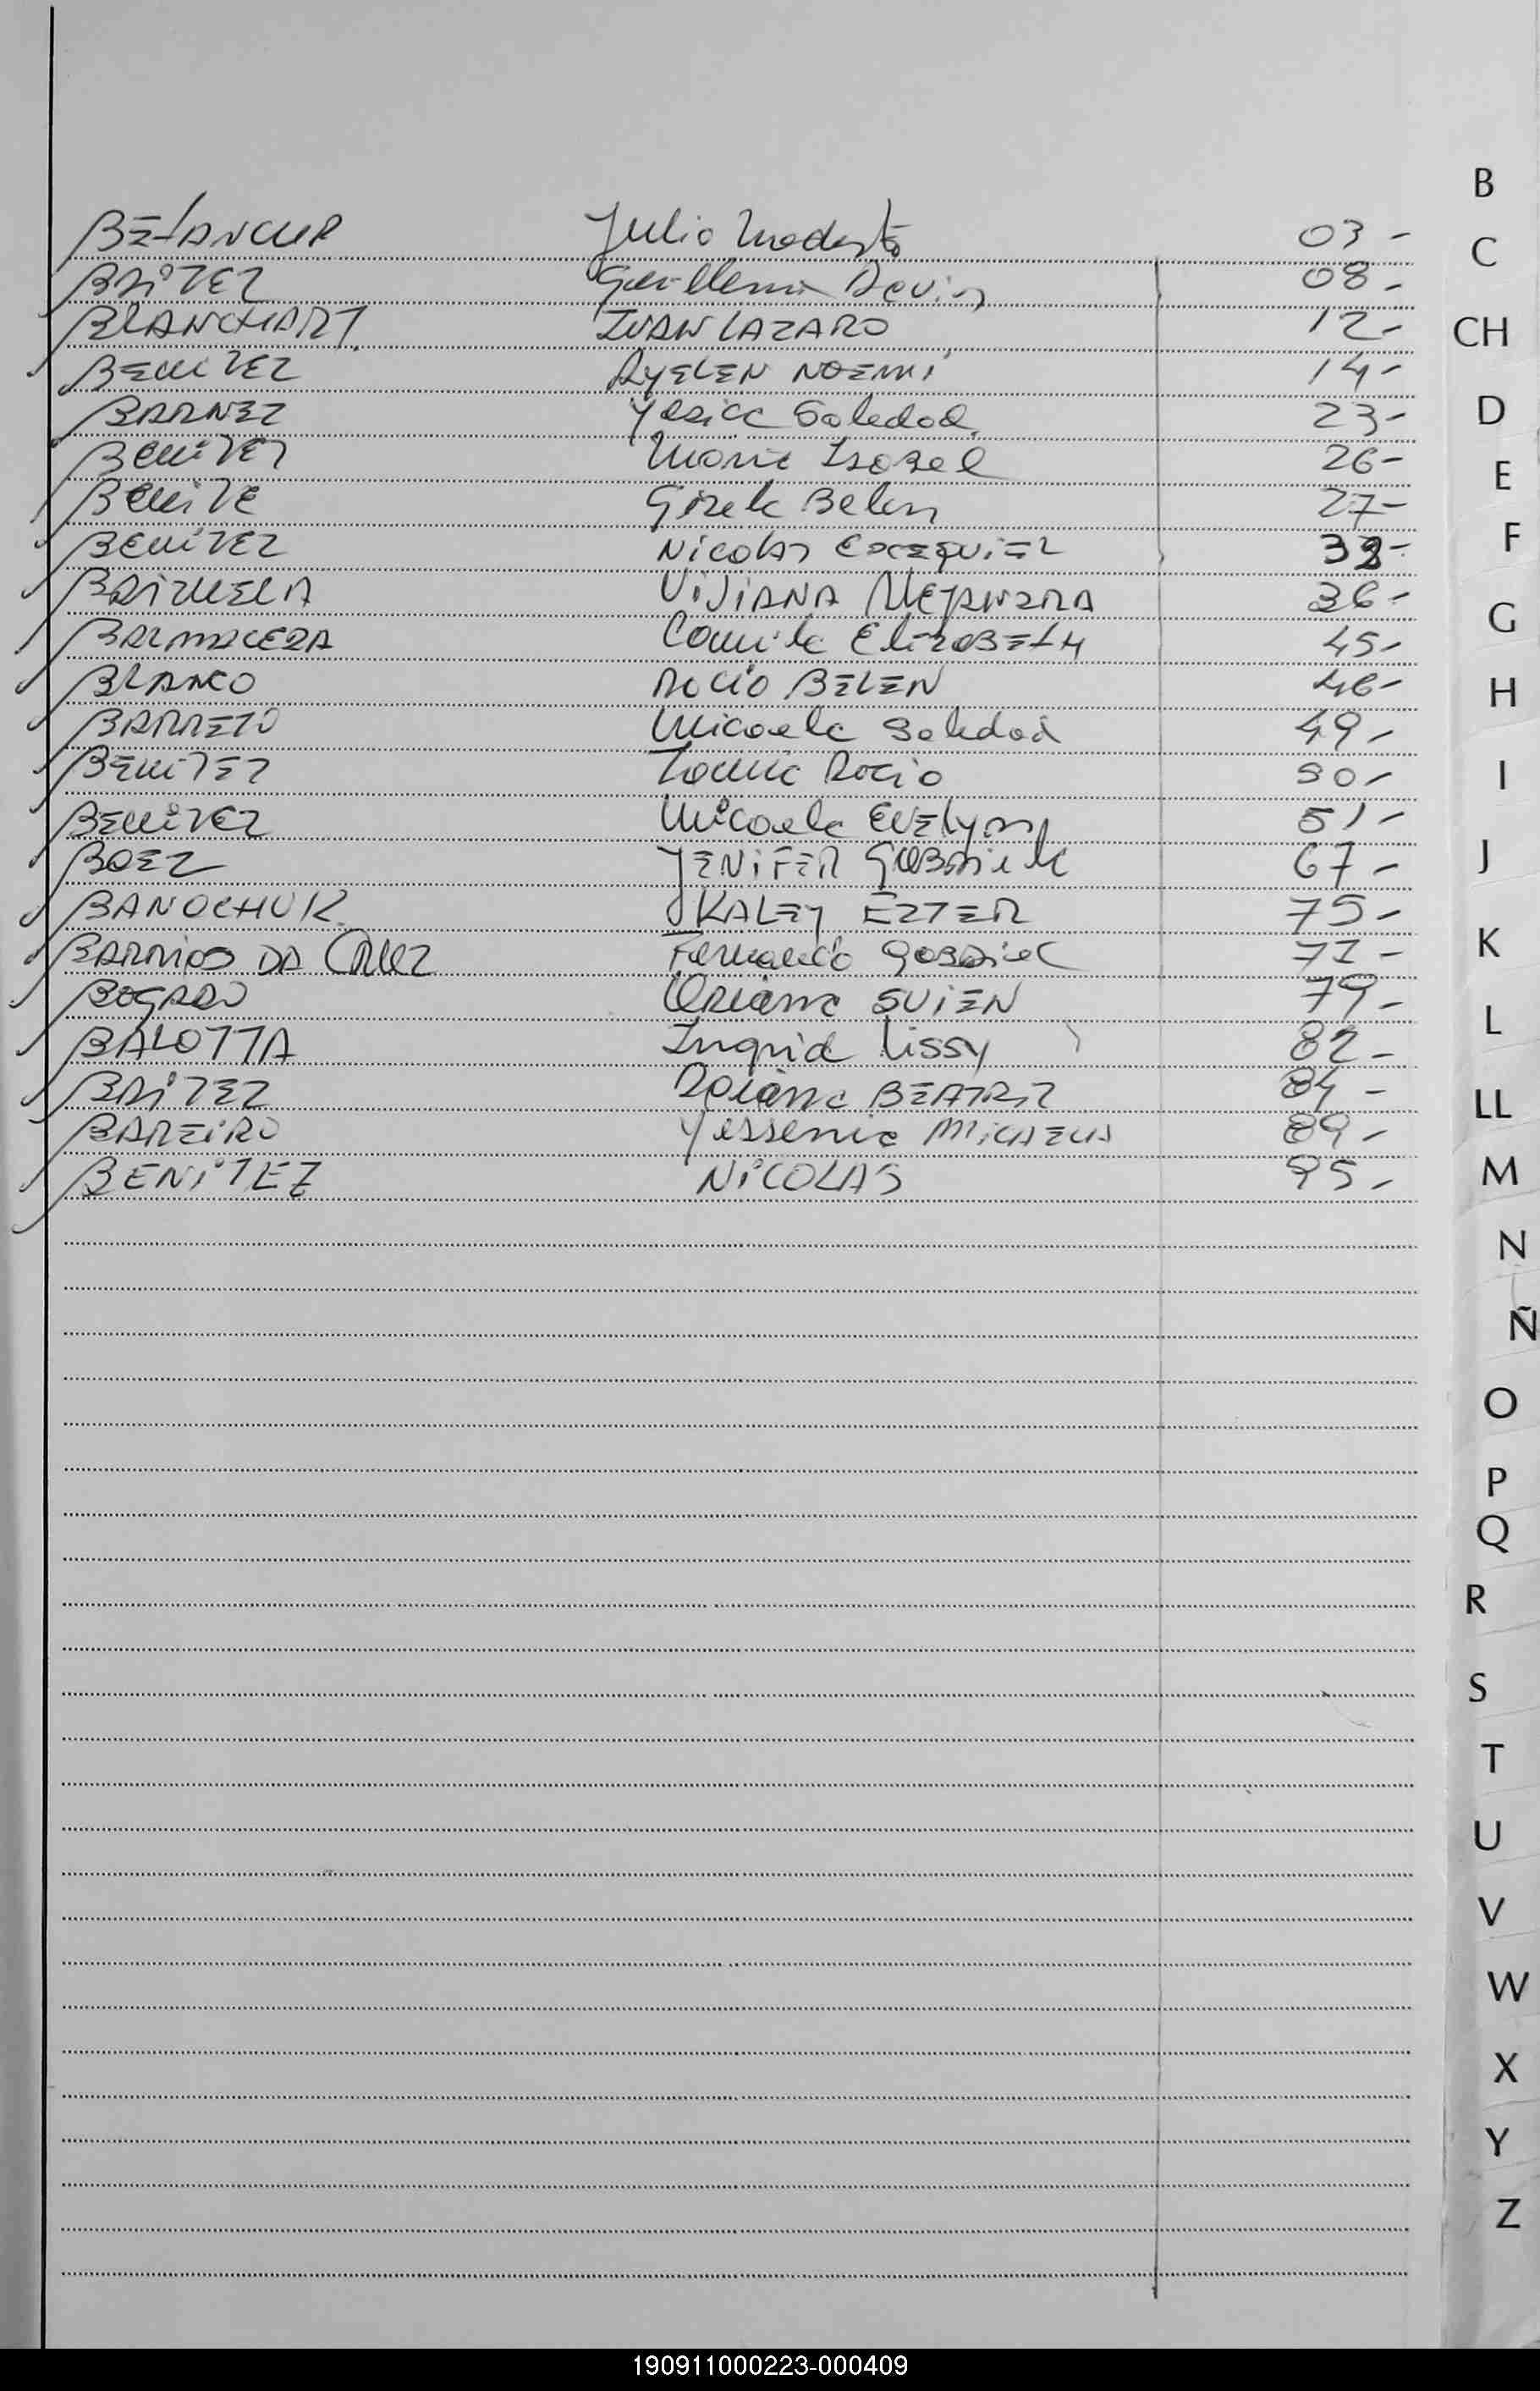 BETANCUR Julio Modesto 03-
BRITEZ Guillermo Devin 08-
BLANCHART IVAN LAZARO 12-
BENITEZ AYELEN NOEMI 14-
BARNEZ Yesica Soledad 23-
BENITEZ Maria Isabel 26-
BENITE Gisela Belen 27-
BENITEZ Nicolas Exequiel 38-
BRIZUELA VIVIANA ALEJANDRA 36-
BALMACEDA Camila Elizabeth 45-
BLANCO ROCIO BELEN 46-
BARRETO Micaela Soledad 49-
BENITEZ Tamie Rocio 50-
BENITEZ Micaela Evelyn 51-
BOEZ JENIFER Gabriela 67-
BANOCHUK SKALEY EZTER 75-
BARRIOS DA CRUZ Fernando Gabriel 77-
BOGADO Oriana SUIEN 79-
BALOTTA Ingrid lissy 82-
BRITEZ Daiana BEATRIZ 84-
BAREIRO Yessenia MICAELA 89-
BENITEZ NICOLAS 95-
B
C
CH
D
E
F
G
H
I
J
K
L
LL
M
N
Ñ
O
P
Q
R
S
T
U
V
W
X
Y
Z
190911000223-000409